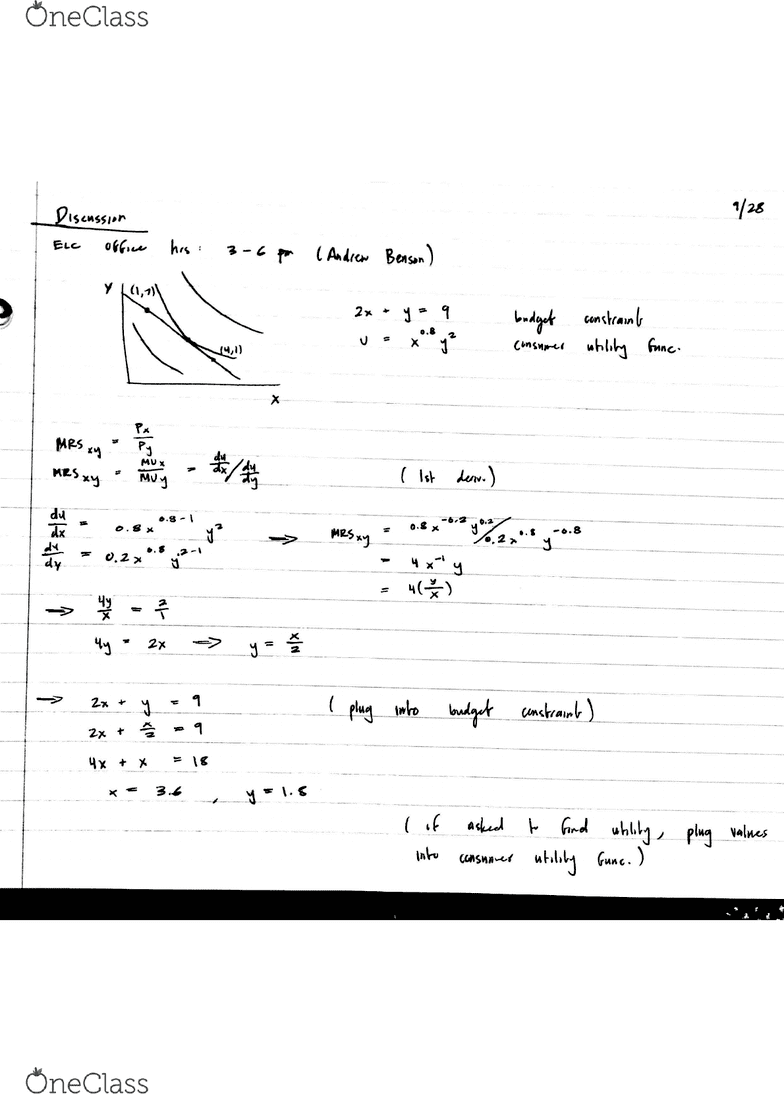 OneClass
9/28
Discussion
ELC office hrs: 3-6 pm (Andrew Benson)
Y
(1,7)
(4,1)
X
2x + y = 9 budget constraint
U = x^0.8 y^2 consumer utility func.
MRS_xy = Px/Py
MRS_xy = MUx/MUy = du/dx / du/dy (1st deriv.)
du/dx = 0.8x^0.8-1 y^2 → MRS_xy = 0.8x^-0.2 y^0.2 / 0.2x^0.8 y^-0.8
du/dy = 0.2x^0.8 y^.2-1
= 4x^-1 y
= 4(y/x)
→ 4y/x = 2/1
4y = 2x → y = x/2
→ 2x + y = 9 (plug into budget constraint)
2x + x/2 = 9
4x + x = 18
x = 3.6, y = 1.8
(if asked to find utility, plug values
into consumer utility func.)
OneClass